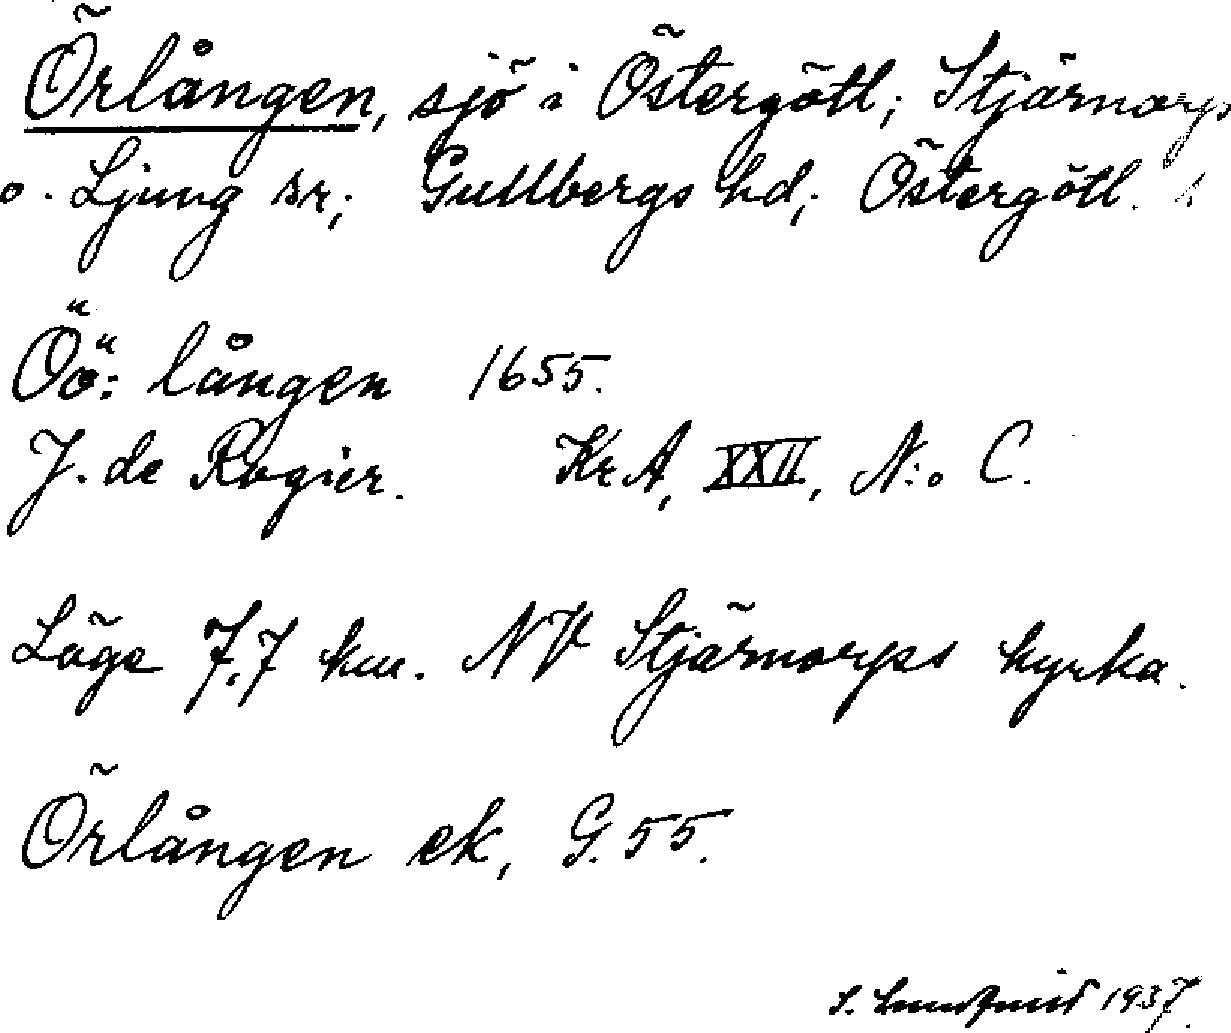 Örlången, sjö i Östergötl; Stjärnorps
o. Ljung snr; Gullbergs hd; Östergötl. l.
Öö: lången 1655.
J. de Rogier. KrA, XXII, N:o C.
Läge 7,7 km. NV Stjärnorps kyrka.
Örlången ek, G. 55.
1937.